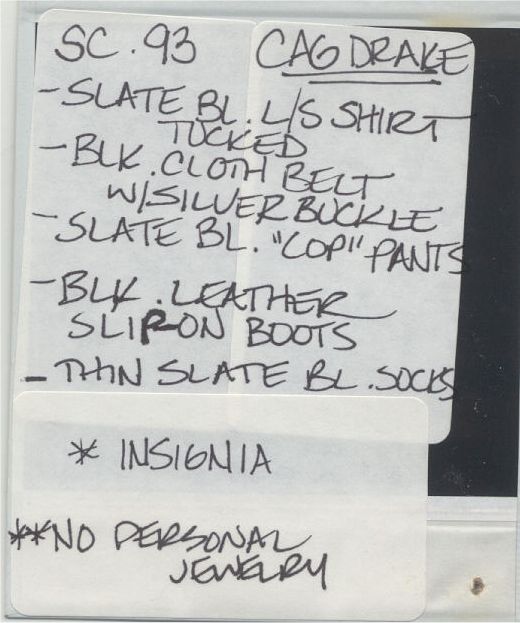 SC. 93 CAG DRAKE
- SLATE BL. L/S SHIRT
TUCKED
- BLK. CLOTH BELT
W/SILVER BUCKLE
- SLATE BL. "COP" PANTS
- BLK. LEATHER
SLIP-ON BOOTS
- THIN SLATE BL. SOCKS
* INSIGNIA
**NO PERSONAL
JEWELRY